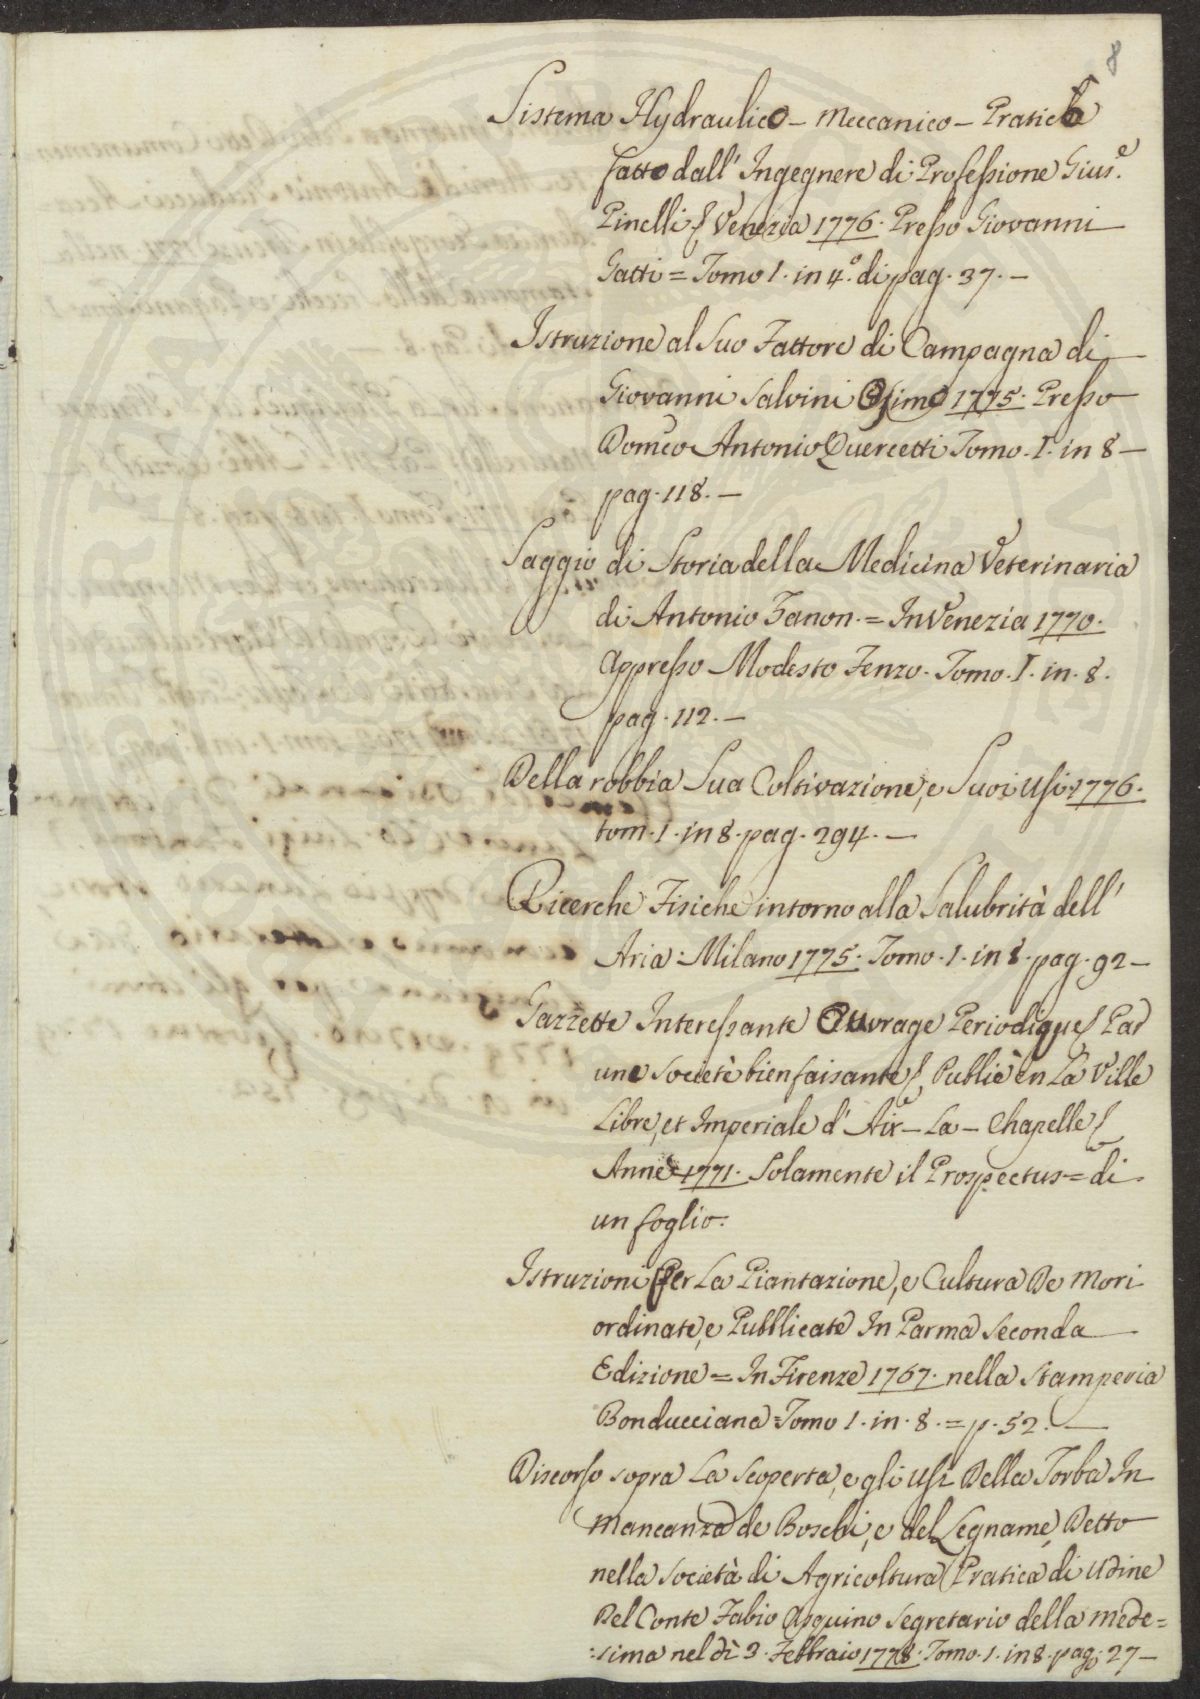 8
Sistema Hydraulico – Meccanico – Pratico
fatto dall' Ingegnere di Professione Gius.e
Pinelli Venezia 1776. Presso Giovanni
Gatti = Tomo I. in 4.o di pag. 37. –
Istruzione al Suo Fattore di Campagna di
Giovanni Salvini Osimo 1775. Presso
Domco Antonio Quercetti Tomo. I. in 8 –
pag. 118. –
Saggio di Storia della Medicina Veterinaria
di Antonio Zanon. = In Venezia 1770.
Appresso Modesto Fenzo. Tomo. I. in. 8.
pag. 112. –
Della robbia Sua Coltivazione, e Suoi Usi. 1776.
tom. 1. in 8. pag. 294. –
Ricerche Fisiche intorno alla Salubrità dell'
Aria: Milano 1775. Tomo. 1. in 8. pag. 92 –
Gazzette Interessante Ouvrage Periodique Par
une Societè bienfaisante, Publiè en La Ville
Libre, et Imperiale d' Aix – La – Chapelle
Anneè 1771. Solamente il Prospectus = di
un foglio.
Istruzioni Per La Piantazione, e Cultura De Mori
ordinate, e Pubblicate In Parma Seconda
Edizione = In Firenze 1767. nella Stamperia
Bonducciana = Tomo 1. in. 8. = p. 52. –
Discorso sopra La Scoperta, e gli Usi Della Torba In
Mancanza de Boschi, e del Legname, Detto
nella Società di Agricoltura Pratica di Udine
Del Conte Fabio Asquino Segretario della mede=
:sima nel dì 3. Febbraio 1778. Tomo. 1. in 8. pag. 27 –